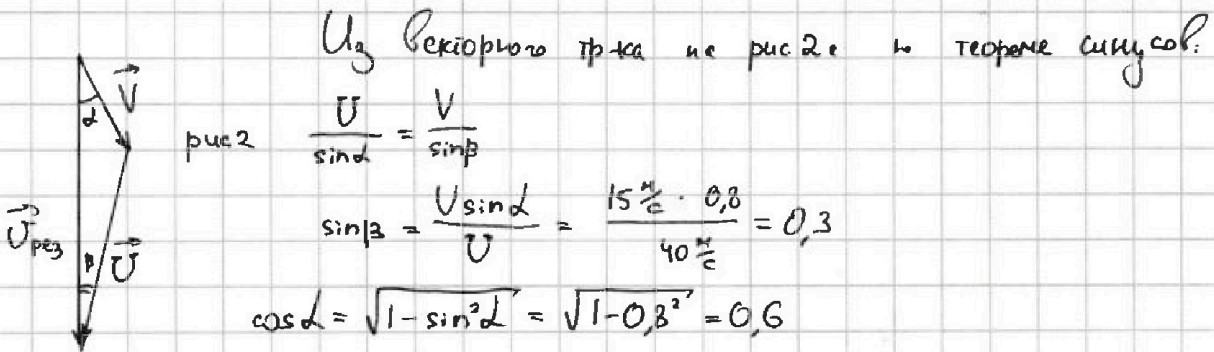 Из векторного тр-ка на рис 2 по теореме синусов:
V⃗
α
рис 2
U/sinα = V/sinβ
sinβ = V sinα / U = 15 м/с · 0,8 / 40 м/с = 0,3
U⃗рез
β U⃗
cosα = √(1-sin²α) = √(1-0,8²) = 0,6